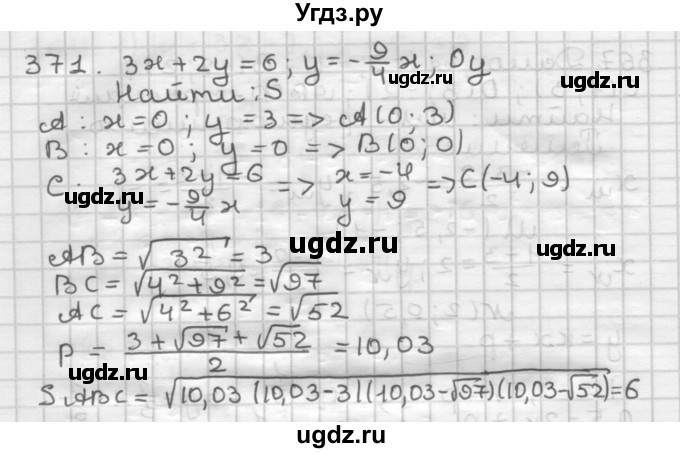 Угдз.ру
371. 3x + 2y = 6; y = -9/4 x; Oy
Найти: S
A: x = 0; y = 3 => A(0; 3)
B: x = 0; y = 0 => B(0; 0)
C: 3x + 2y = 6 => x = -4 => C(-4; 9)
y = -9/4 x y = 9
ugdz.ru ugdz.ru
ugdz.ru
AB = √3² = 3
BC = √4² + 9² = √97
AC = √4² + 6² = √52
ugdz.ru
P = (3 + √97 + √52)/2 = 10,03
ugdz.ru ugdz.ru
S ABC = √10,03 (10,03 - 3)(10,03 - √97)(10,03 - √52) = 6
ugdz.ru